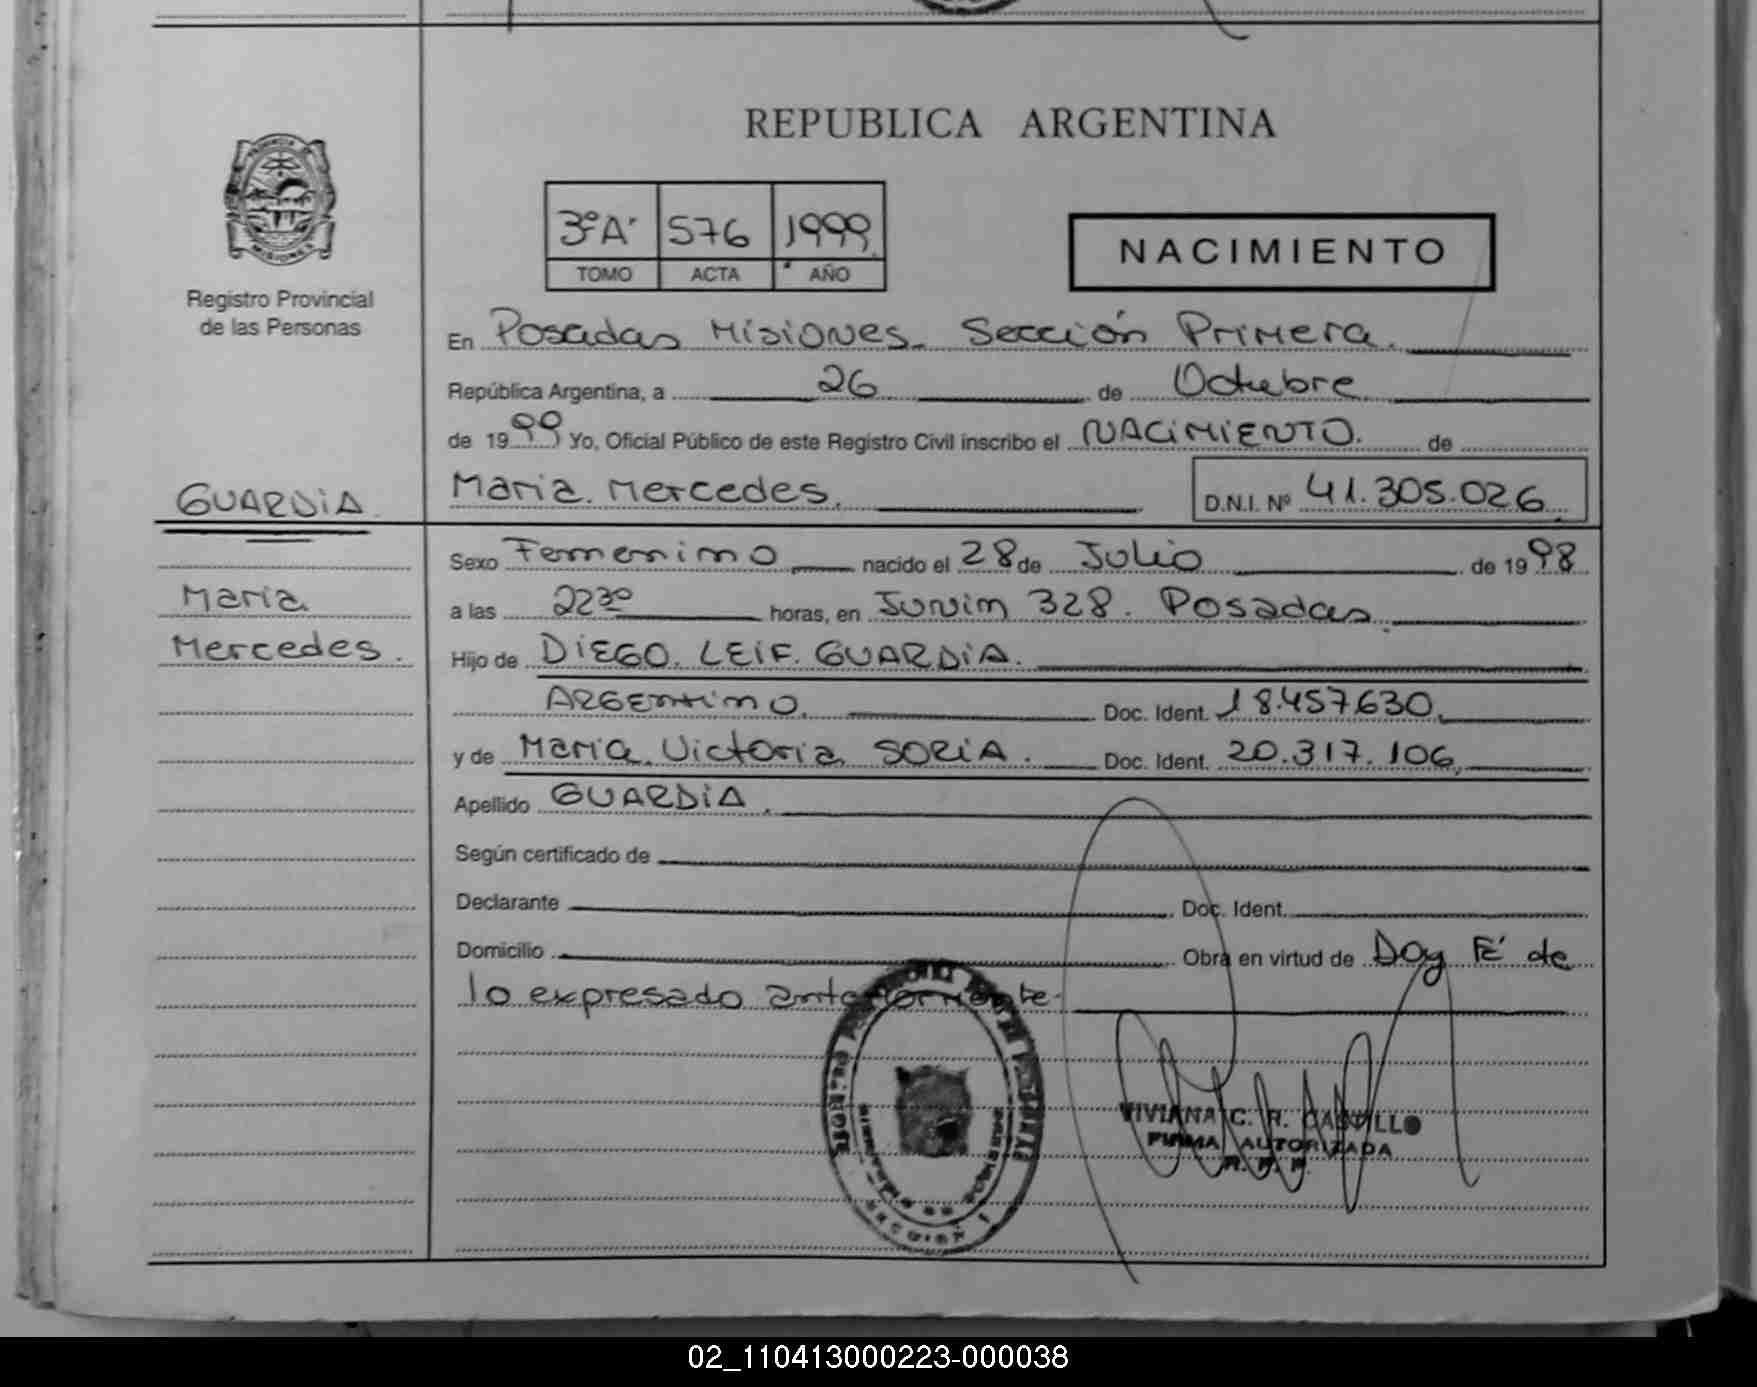 REPUBLICA ARGENTINA
3ºA. 576 1999
TOMO ACTA AÑO
NACIMIENTO
Registro Provincial
de las Personas
MISIONES
En Posadas Misiones. Sección Primera.
República Argentina, a 26 de Octubre
de 1999 Yo, Oficial Público de este Registro Civil inscribo el NACIMIENTO. de
GUARDIA. Maria. Mercedes. D.N.I. Nº 41.305.026.
Sexo Femenino nacido el 28 de Julio de 1998
Maria a las 22³⁰ horas, en Junin 328. Posadas.
Mercedes. Hijo de DIEGO. LEIF. GUARDIA.
ARGENtino. Doc. Ident. 18.457630.
y de Maria Victoria SORIA. Doc. Ident. 20.317.106.
Apellido GUARDIA.
Según certificado de
Declarante Doc. Ident.
Domicilio Obra en virtud de Doy Fé de
lo expresado anteriormente-
VIVIANA C. R. CASTILLO
FIRMA AUTORIZADA
SECCION 1
02_110413000223-000038